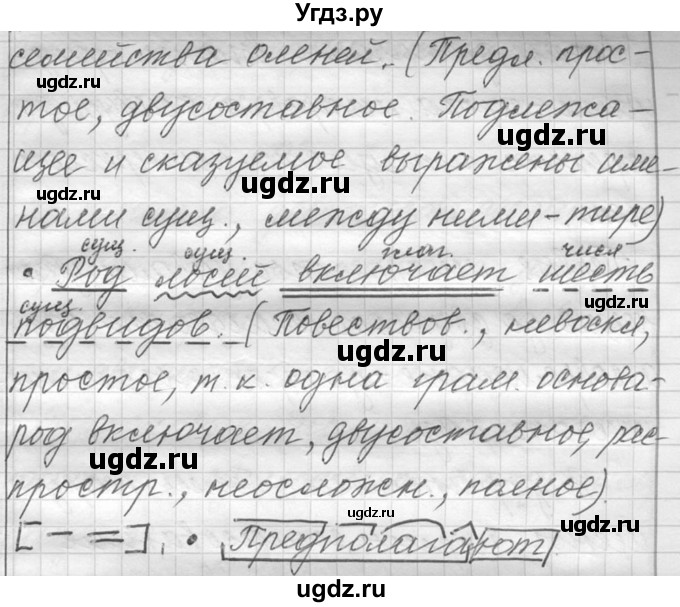 Угдз.ру
семейства оленей. (Предл. прос-
тое, двусоставное. Подлежа-
щее и сказуемое выражены име-
нами сущ., между ними - тире)
сущ. сущ. глаг. числ
• Род лосей включает шесть
сущ.
подвидов. (Повествов., невоскл,
простое, т. к. одна грам. основа-
род включает, двусоставное, рас-
простр., неосложн., полное).
[ - = ]. • Предполагают
ugdz.ru
ugdz.ru
ugdz.ru
ugdz.ru
ugdz.ru
ugdz.ru
ugdz.ru
ugdz.ru
ugdz.ru
ugdz.ru
ugdz.ru
ugdz.ru